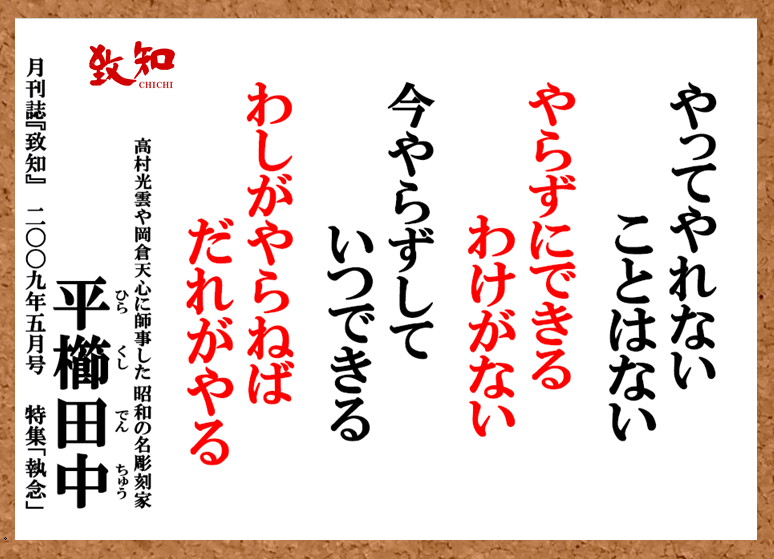 やってやれない
ことはない
やらずにできる
わけがない
今やらずして
いつできる
わしがやらねば
だれがやる
高村光雲や岡倉天心に師事した 昭和の名彫刻家
ひら くし でん ちゅう
平櫛田中
致知
CHICHI
月刊誌『致知』 二〇〇九年五月号 特集「執念」